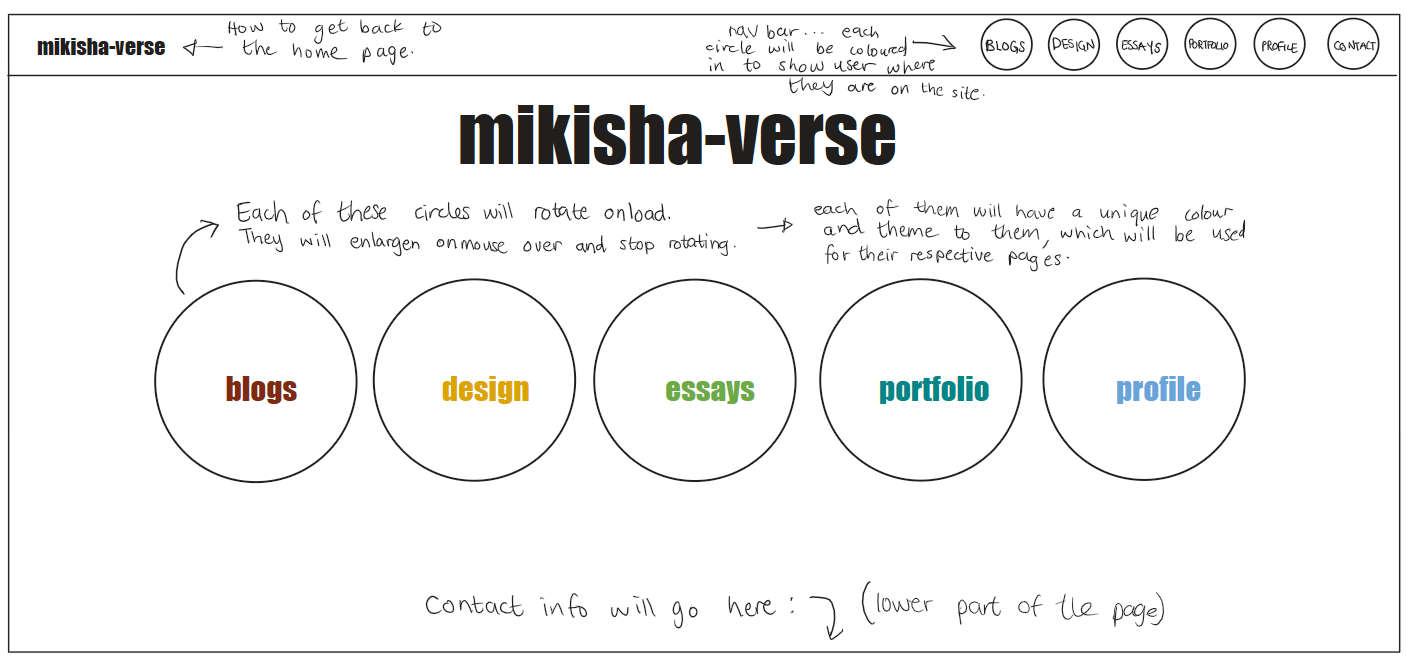 mikisha-verse
How to get back to
the home page.
nav bar... each
circle will be coloured
in to show user where
they are on the site.
BLOGS
DESIGN
ESSAYS
PORTFOLIO
PROFILE
CONTACT
mikisha-verse
Each of these circles will rotate onload.
They will enlargen onmouse over and stop rotating.
each of them will have a unique colour
and theme to them, which will be used
for their respective pages.
blogs
design
essays
portfolio
profile
Contact info will go here: (lower part of the page)